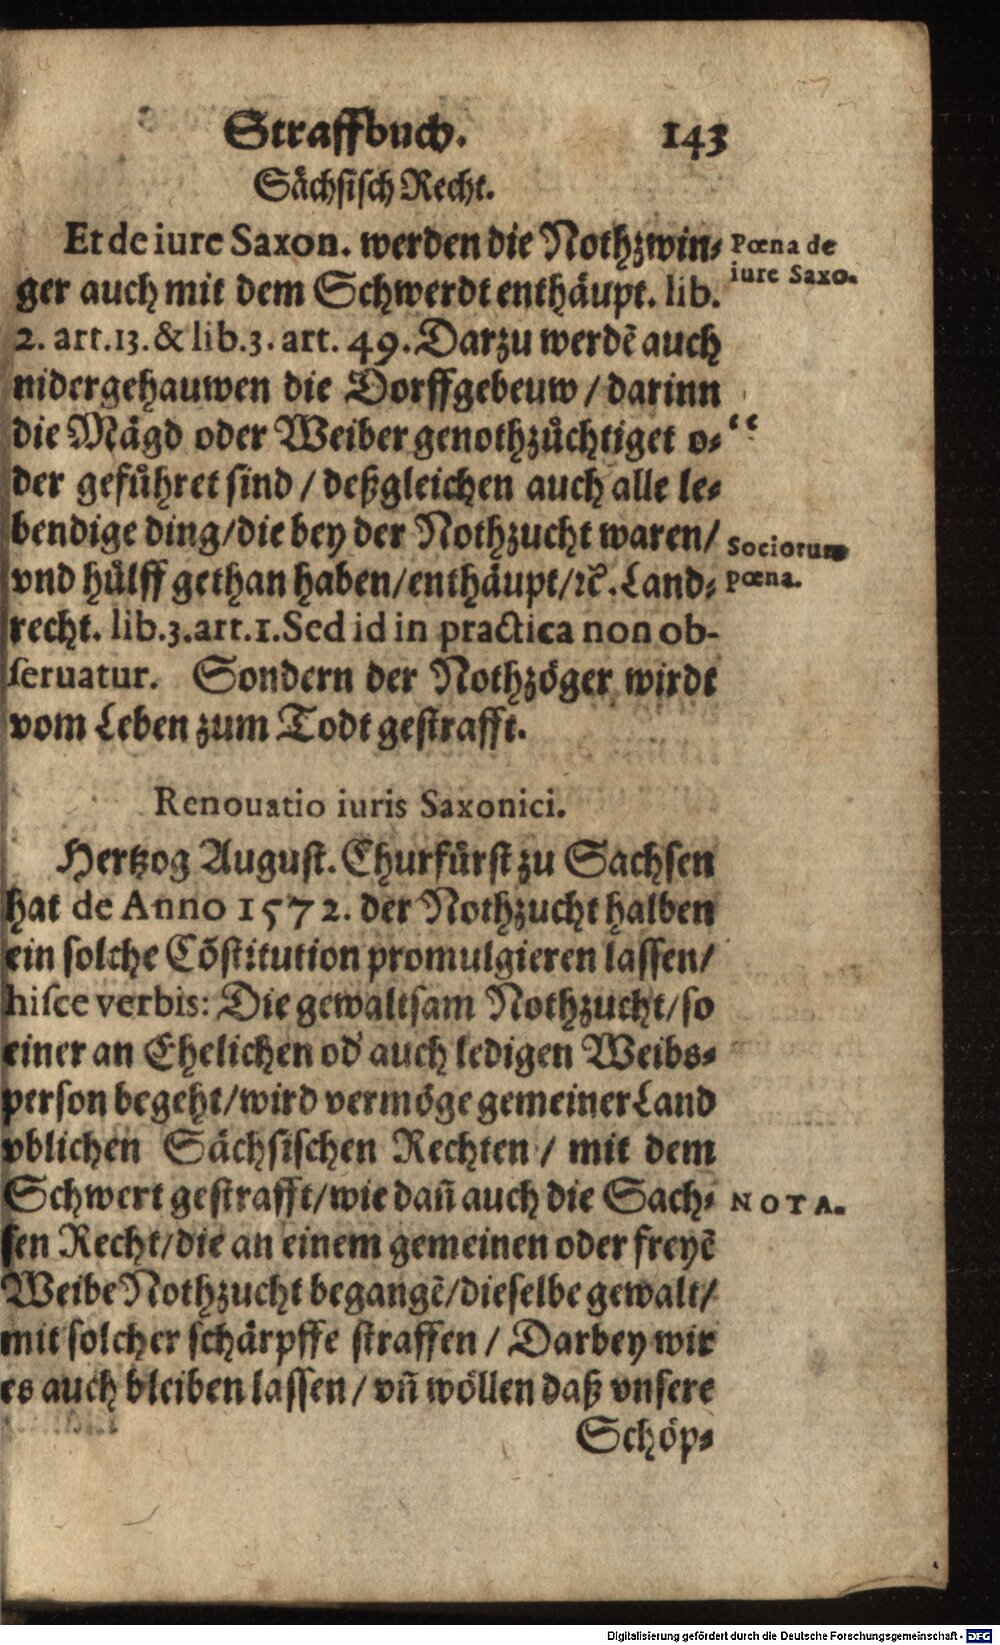 Straffbuch. 143
Sächsisch Recht.
Et de iure Saxon. werden die Nothzwin⸗
ger auch mit dem Schwerdt enthäupt. lib.
2. art. 13. & lib. 3. art. 49. Darzu werdẽ auch
nidergehauwen die Dorffgebeuw / darinn
die Mägd oder Weiber genothzůchtiget o⸗
der gefůhret sind / deßgleichen auch alle le⸗
bendige ding / die bey der Nothzucht waren /
vnd hůlff gethan haben / enthäupt / ꝛc. Land⸗
recht. lib. 3. art. 1. Sed id in practica non ob-
seruatur. Sondern der Nothzöger wirdt
vom Leben zum Todt gestrafft.
Pœna de
iure Saxo.
“
Sociorum
pœna.
Renouatio iuris Saxonici.
Hertzog August. Churfürst zu Sachsen
hat de Anno 1572. der Nothzucht halben
ein solche Cõstitution promulgieren lassen /
hisce verbis: Die gewaltsam Nothzucht / so
einer an Ehelichen od' auch ledigen Weibs⸗
person begeht / wird vermöge gemeiner Land
vblichen Sächsischen Rechten / mit dem
Schwert gestrafft / wie dañ auch die Sach⸗
sen Recht / die an einem gemeinen oder freyẽ
Weibe Nothzucht begangẽ / dieselbe gewalt /
mit solcher schärpffe straffen / Darbey wir
es auch bleiben lassen / vñ wöllen daß vnsere
Schöp⸗
NOTA.
Digitalisierung gefördert durch die Deutsche Forschungsgemeinschaft - DFG